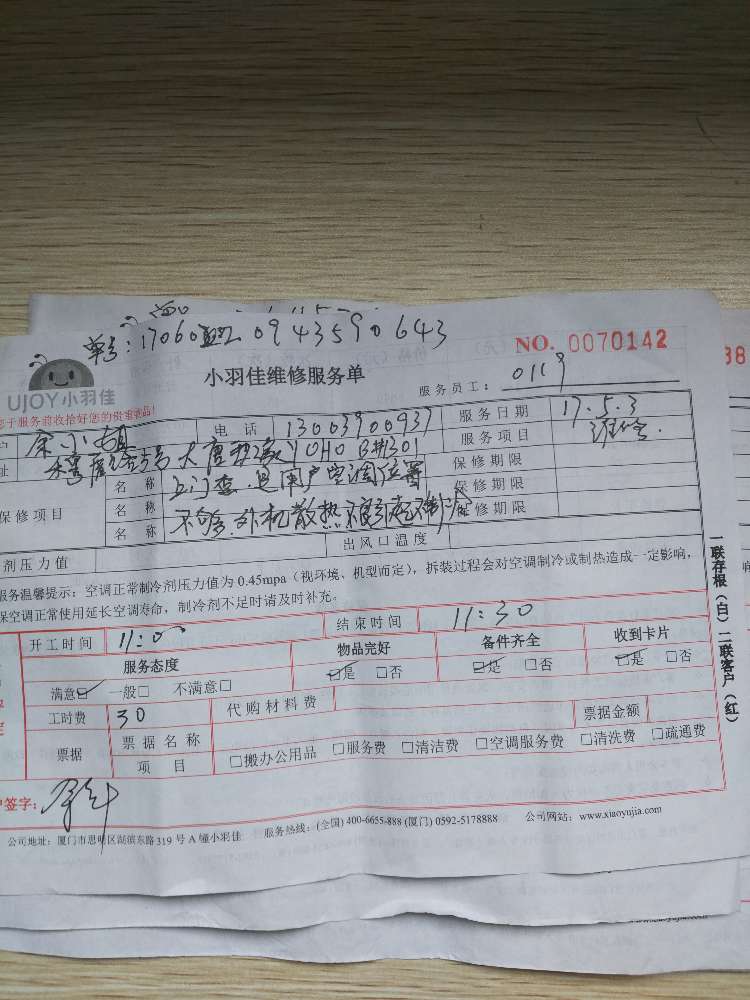 单号:17060 0943590643
NO. 0070142
UJOY小羽佳
小羽佳维修服务单
服务员工: 0119
于服务前收拾好您的贵重物品!
小姐 电话 13003900937 服务日期 17.5.3
址 大唐 YOHO B栋301 服务项目 维修
保修项目 名称 上门查 是用户空调位置 保修期限
名称 保修期限
名称 不够.外机散热 制冷 保修期限
剂压力值 出风口温度
服务温馨提示:空调正常制冷剂压力值为0.45mpa(视环境、机型而定),拆装过程会对空调制冷或制热造成一定影响,
保空调正常使用延长空调寿命,制冷剂不足时请及时补充。
开工时间 11:00 结束时间 11:30
服务态度 物品完好 备件齐全 收到卡片
满意☑ 一般□ 不满意□ ☑是 □否 ☑是 □否 ☑是 □否
工时费 30 代购材料费 票据金额
票据 票据名称
项目 □搬办公用品 □服务费 □清洁费 □空调服务费 □清洗费 □疏通费
户签字:
公司地址:厦门市思明区湖滨东路319号A幢小羽佳 服务热线:(全国)400-6655-888 (厦门) 0592-5178888 公司网站:www.xiaoyujia.com
一联存根(白)二联客户(红)